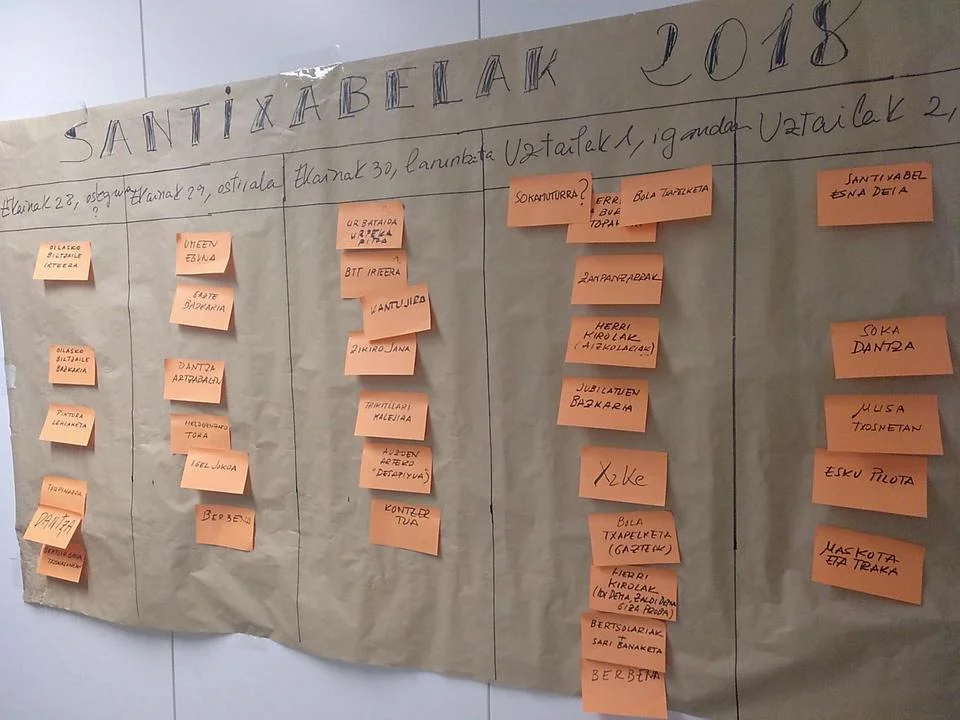 SANTIXABELAK 2018
Ekainak 28, osteguna
?
OILASKO
BILTZAILE
IRTEERA
OILASKO
BILTZAILE
BAZKARIA
PINTURA
LEHIAKETA
TXUPINAZOA
DANTZA
Ekainak 29, ostirala
UMEEN
EGUNA
GAZTE
BAZKARIA
DANTZA
ARTZABALEN
TOKA
IGEL JOKOA
BERBENA
Ekainak 30, larunbata
UR BATAIDA
?
BTT IRTEERA
KANTUJIRA
ZIKIRO JANA
TRIKITILARI
KALEJIRA
AUZOEN
ARTEKO
"DESAFIYUA"
KONTZER
TUA
Uztailak 1, igandea
SOKAMUTURRA?
BOLA TXAPELKETA
ZANPANZARRAK
HERRI
KIROLAK
(AIZKOLARIAK)
JUBILATUEN
BAZKARIA
XZKE
BOLA
TXAPELKETA
(GAZTEAK)
HERRI
KIROLAK
(IDI DEMA, ZALDI DEMA
GIZA PROBA)
BERTSOLARIAK
+
SARI BANAKETA
BERBENA
Uztailak 2,
SANTIXABEL
ESNA DEIA
SOKA
DANTZA
MUSA
TXOSNETAN
ESKU PILOTA
MASKOTA
ETA TRAKA